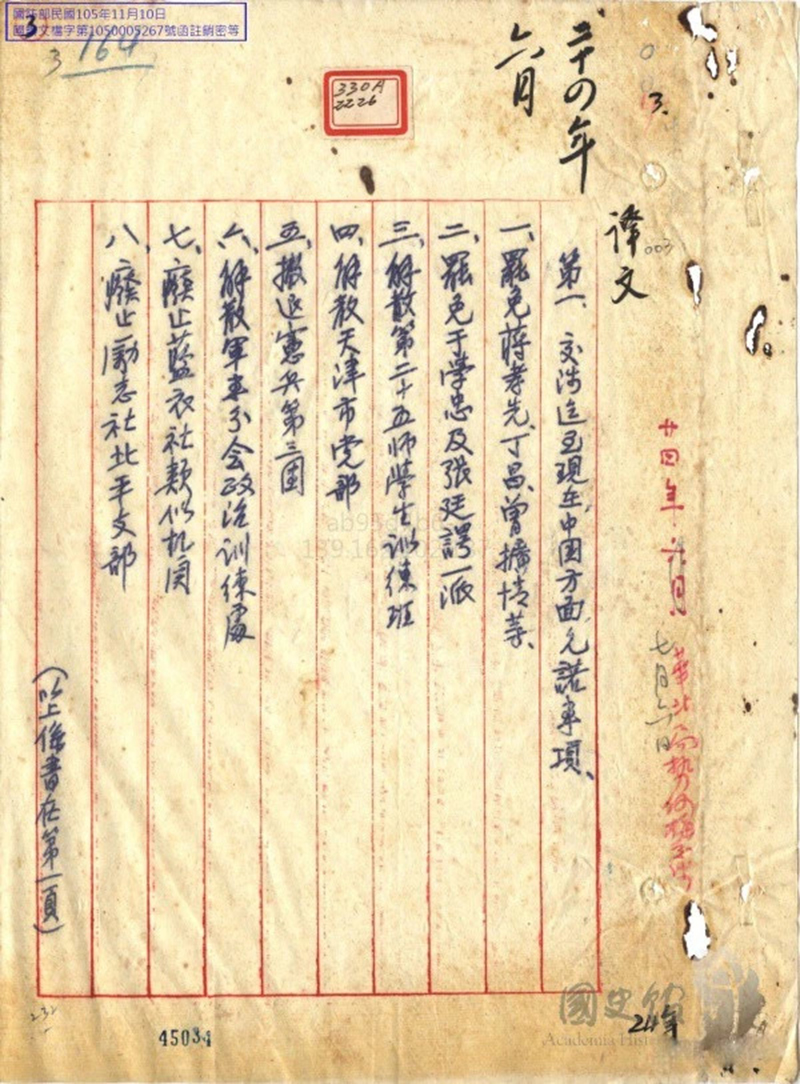 國防部民國105年11月10日
國防文檔字第1050005267號函註銷密等
3
3
164
330A
2226
二十四年
六月
3.
003
譯文
第一、交涉迄至現在中國方面允諾事項、
一、罷免蔣孝先、丁昌、曾擴情等、
二、罷免于學忠及張廷諤一派
三、解散第二十五師學生训練班
四、解散天津市党部
五、撤退憲兵第三团
六、解散軍事分会政治训練處
七、廢止藍衣社類似机関
八、廢止勵志社北平支部
（以上係書在第一頁）
廿四年六月
七月六日
華北局勢
24年
232
45034
國史館
Academia Histo